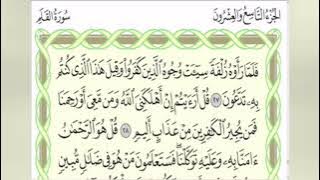 الجزء التاسع والعشرون
سورة القلم
فَلَمَّا رَأَوْهُ زُلْفَةً سِيٓـَٔتْ وُجُوهُ ٱلَّذِينَ كَفَرُوا۟ وَقِيلَ هَـٰذَا ٱلَّذِى كُنتُم
بِهِۦ تَدَّعُونَ ٢٧ قُلْ أَرَءَيْتُمْ إِنْ أَهْلَكَنِىَ ٱللَّهُ وَمَن مَّعِىَ أَوْ رَحِمَنَا
فَمَن يُجِيرُ ٱلْكَـٰفِرِينَ مِنْ عَذَابٍ أَلِيمٍ ٢٨ قُلْ هُوَ ٱلرَّحْمَـٰنُ
ءَامَنَّا بِهِۦ وَعَلَيْهِ تَوَكَّلْنَا فَسَتَعْلَمُونَ مَنْ هُوَ فِى ضَلَـٰلٍ مُّبِينٍ